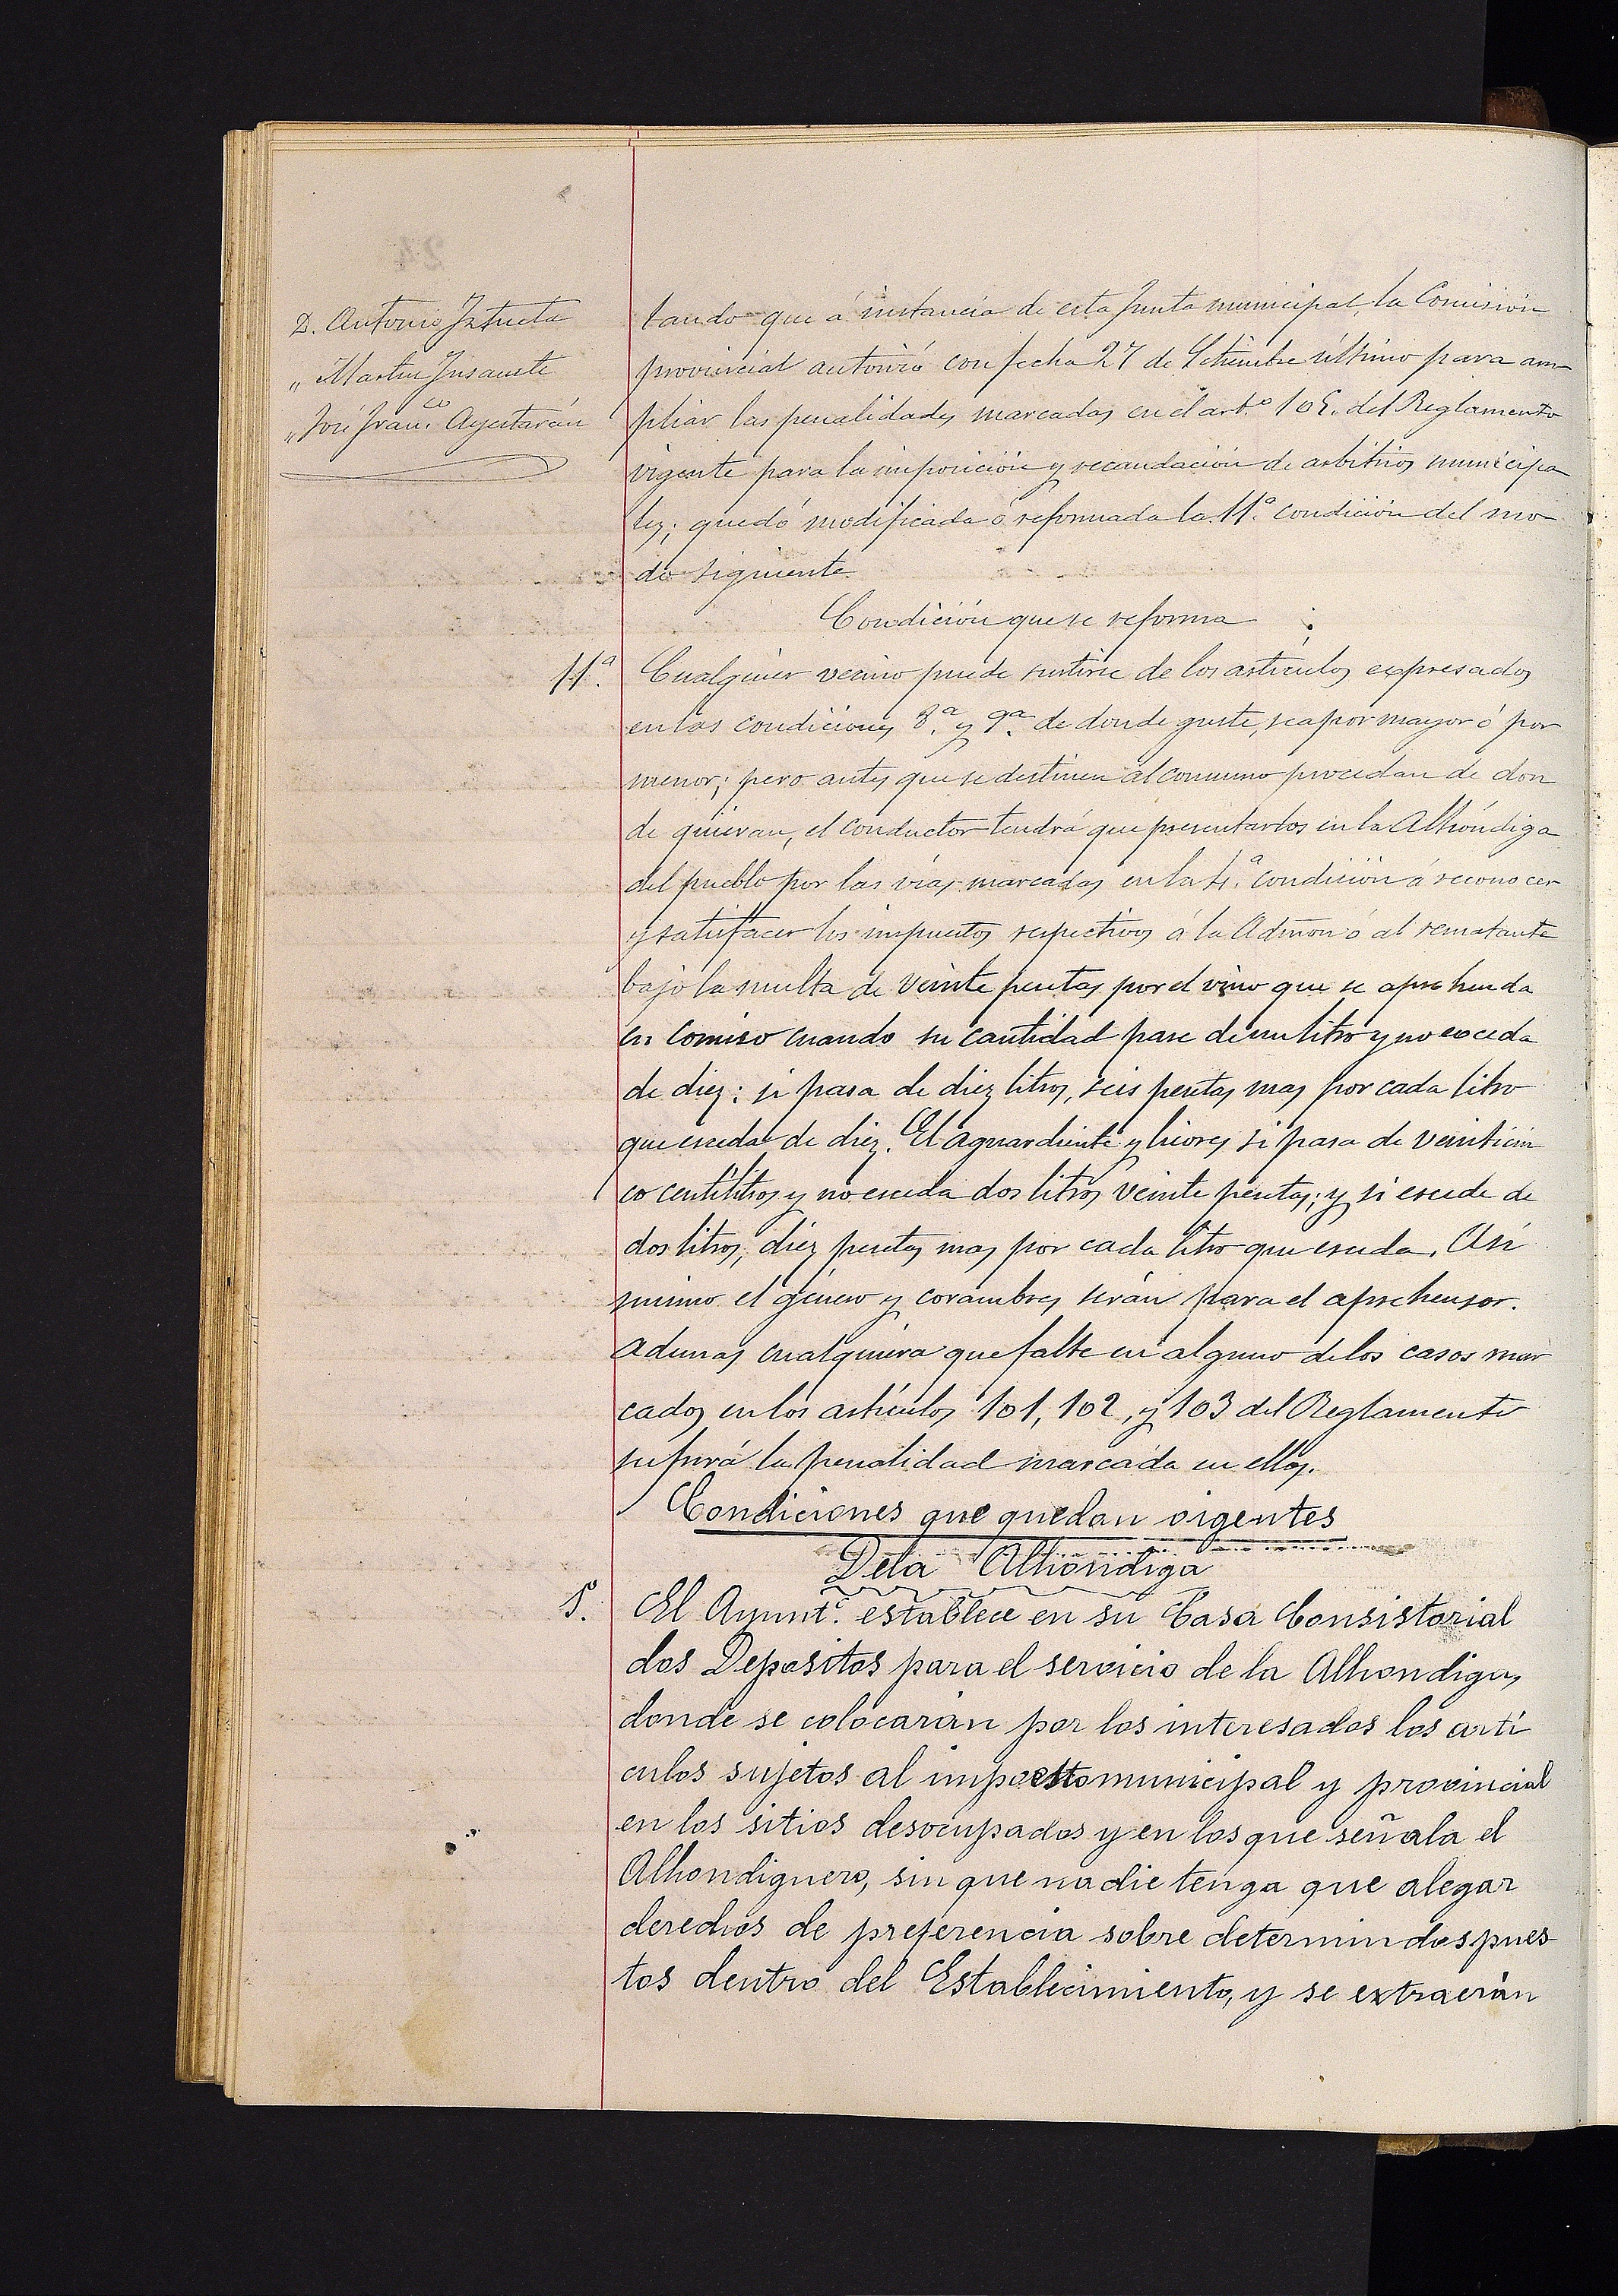 D. Antonio Iztueta
„ Martin Insausti
„ José Fran.co Ayestarán
tando que á instancia de esta Junta municipal, la Comisión
provincial autorizó con fecha 27 de Setiembre último para am
pliar las penalidades marcadas en el art.º 105. del Reglamento
vigente para la imposición y recaudación de arbitrios municipa
les; quedó modificada ó reformada la 11.ª condición del mo
do siguiente.
Condición que se reforma
11.ª Cualquier vecino puede surtirse de los artículos expresados
en las condiciones 8.ª y 9.ª de donde guste, sea por mayor ó por
menor; pero antes que se destinen al consumo procedan de don
de quieran, el conductor tendrá que presentarlos en la Alhóndiga
del pueblo por las vías marcadas en la 4.ª condición á reconocer
y satisfacer los impuestos respectivos á la Admon ó al rematante
bajo la multa de veinte pesetas por el vino que se aprehenda
en comiso cuando su cantidad pase de un litro y no exceda
de diez: si pasa de diez litros, seis pesetas mas por cada litro
que esceda de diez. El aguardiente y licores si pasa de veinticin
co centilitros y no esceda dos litros veinte pesetas; y si escede de
dos litros, diez pesetas mas por cada litro que esceda. Asi
mismo el género y corambres serán para el aprehensor.
Ademas cualquiera que falte en alguno de los casos mar
cados en los artículos 101, 102, y 103 del Reglamento
sufrirá la penalidad marcada en ellos.
Condiciones que quedan vigentes
De la Alhóndiga
1.ª El Ayunt.º establece en su Casa Consistorial
dos Depositos para el servicio de la Alhondiga,
donde se colocarán por los interesados los artí
culos sujetos al impuesto municipal y provincial
en los sitios desocupados y en los que señala el
Alhondiguero, sin que nadie tenga que alegar
derechos de preferencia sobre determindos pues
tos dentro del Establecimiento, y se extraerán